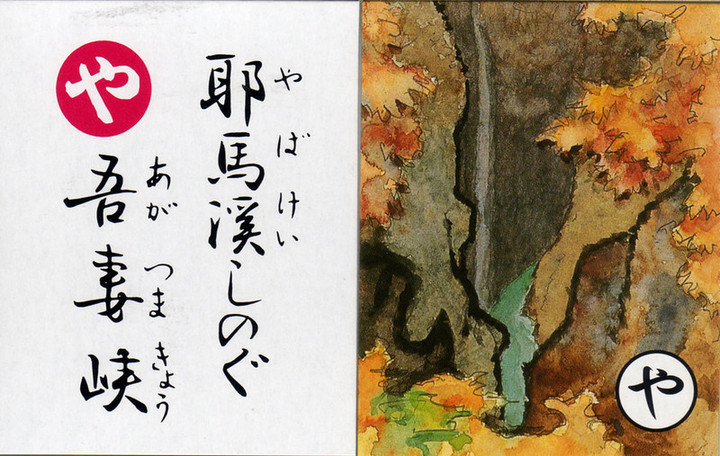 耶馬溪しのぐ
やばけい
や
吾妻峡
あがつまきょう
や